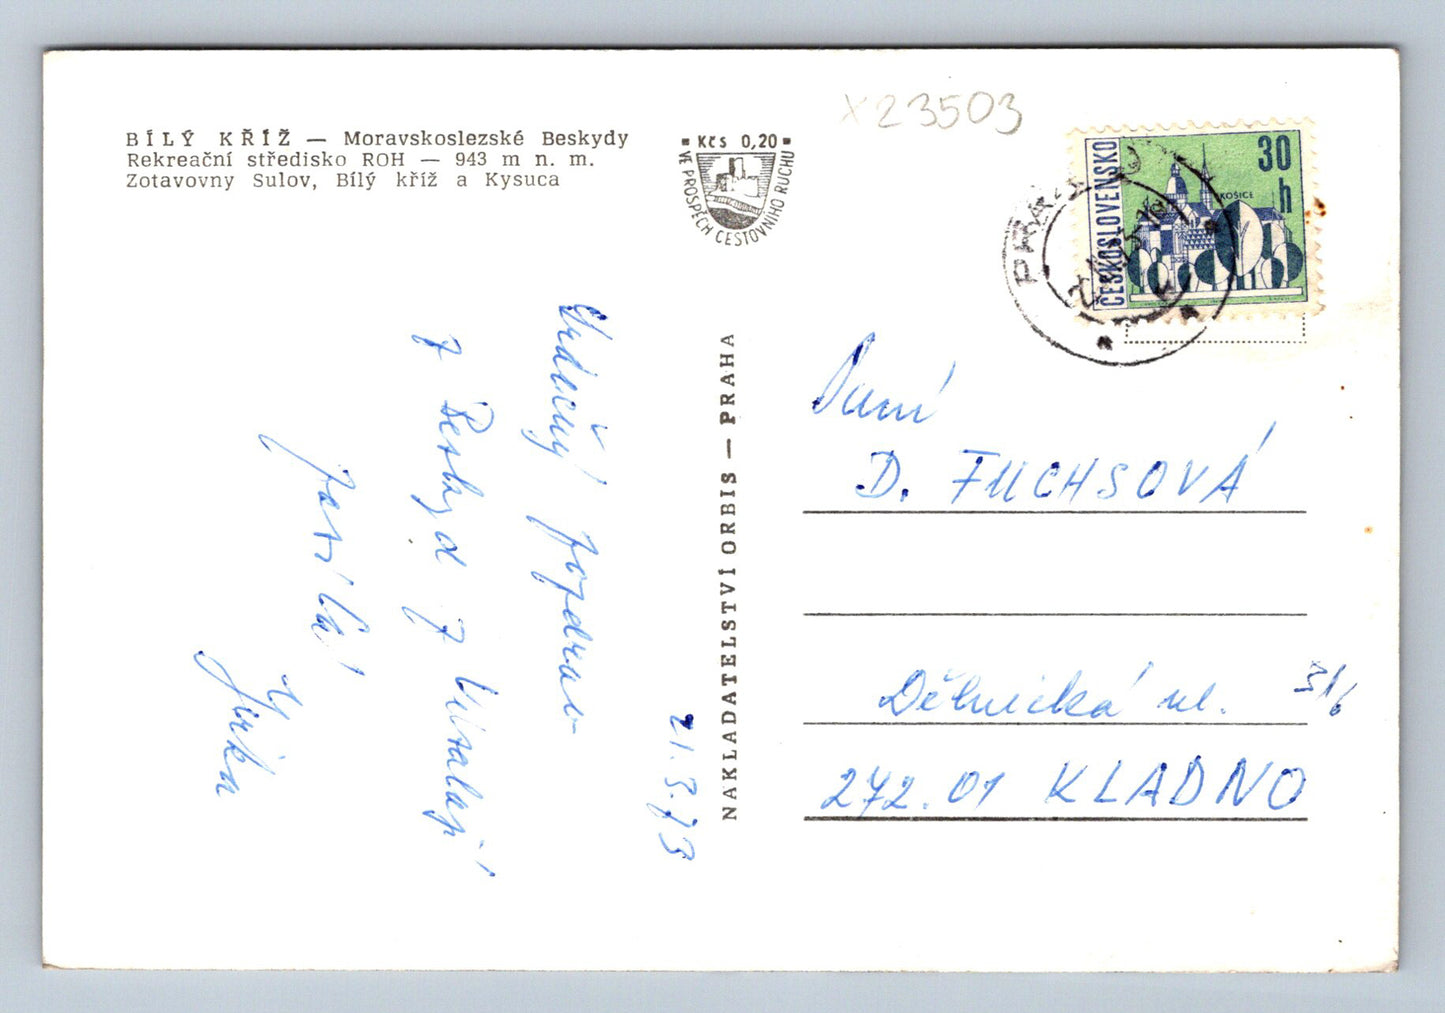 BÍLÝ KŘÍŽ — Moravskoslezské Beskydy
Rekreační středisko ROH — 943 m n. m.
Zotavovny Sulov, Bílý kříž a Kysuca
Kčs 0,20
VE PROSPĚCH CESTOVNÍHO RUCHU
X23503
ČESKOSLOVENSKO
30 h
KOŠICE
PRAHA
NAKLADATELSTVÍ ORBIS — PRAHA
21.3.73
Srdečný pozdrav
z Beskyd
Jirka
Paní
D. FUCHSOVÁ
Dělnická ul. 316
272.01 KLADNO